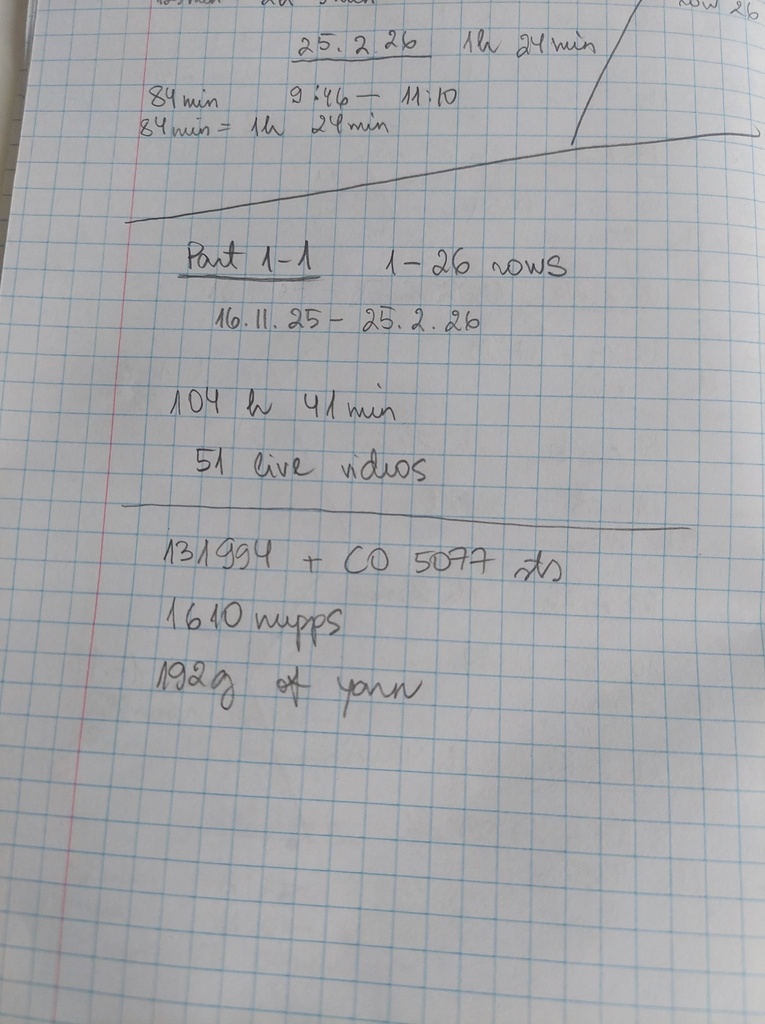 row 26
25.2.26 1h 24min
84min 9:46 — 11:10
84min = 1h 24min
Part 1-1 1-26 rows
16.11.25 - 25.2.26
104 h 41 min
51 live videos
131994 + CO 5077 sts
1610 nupps
192g of yarn